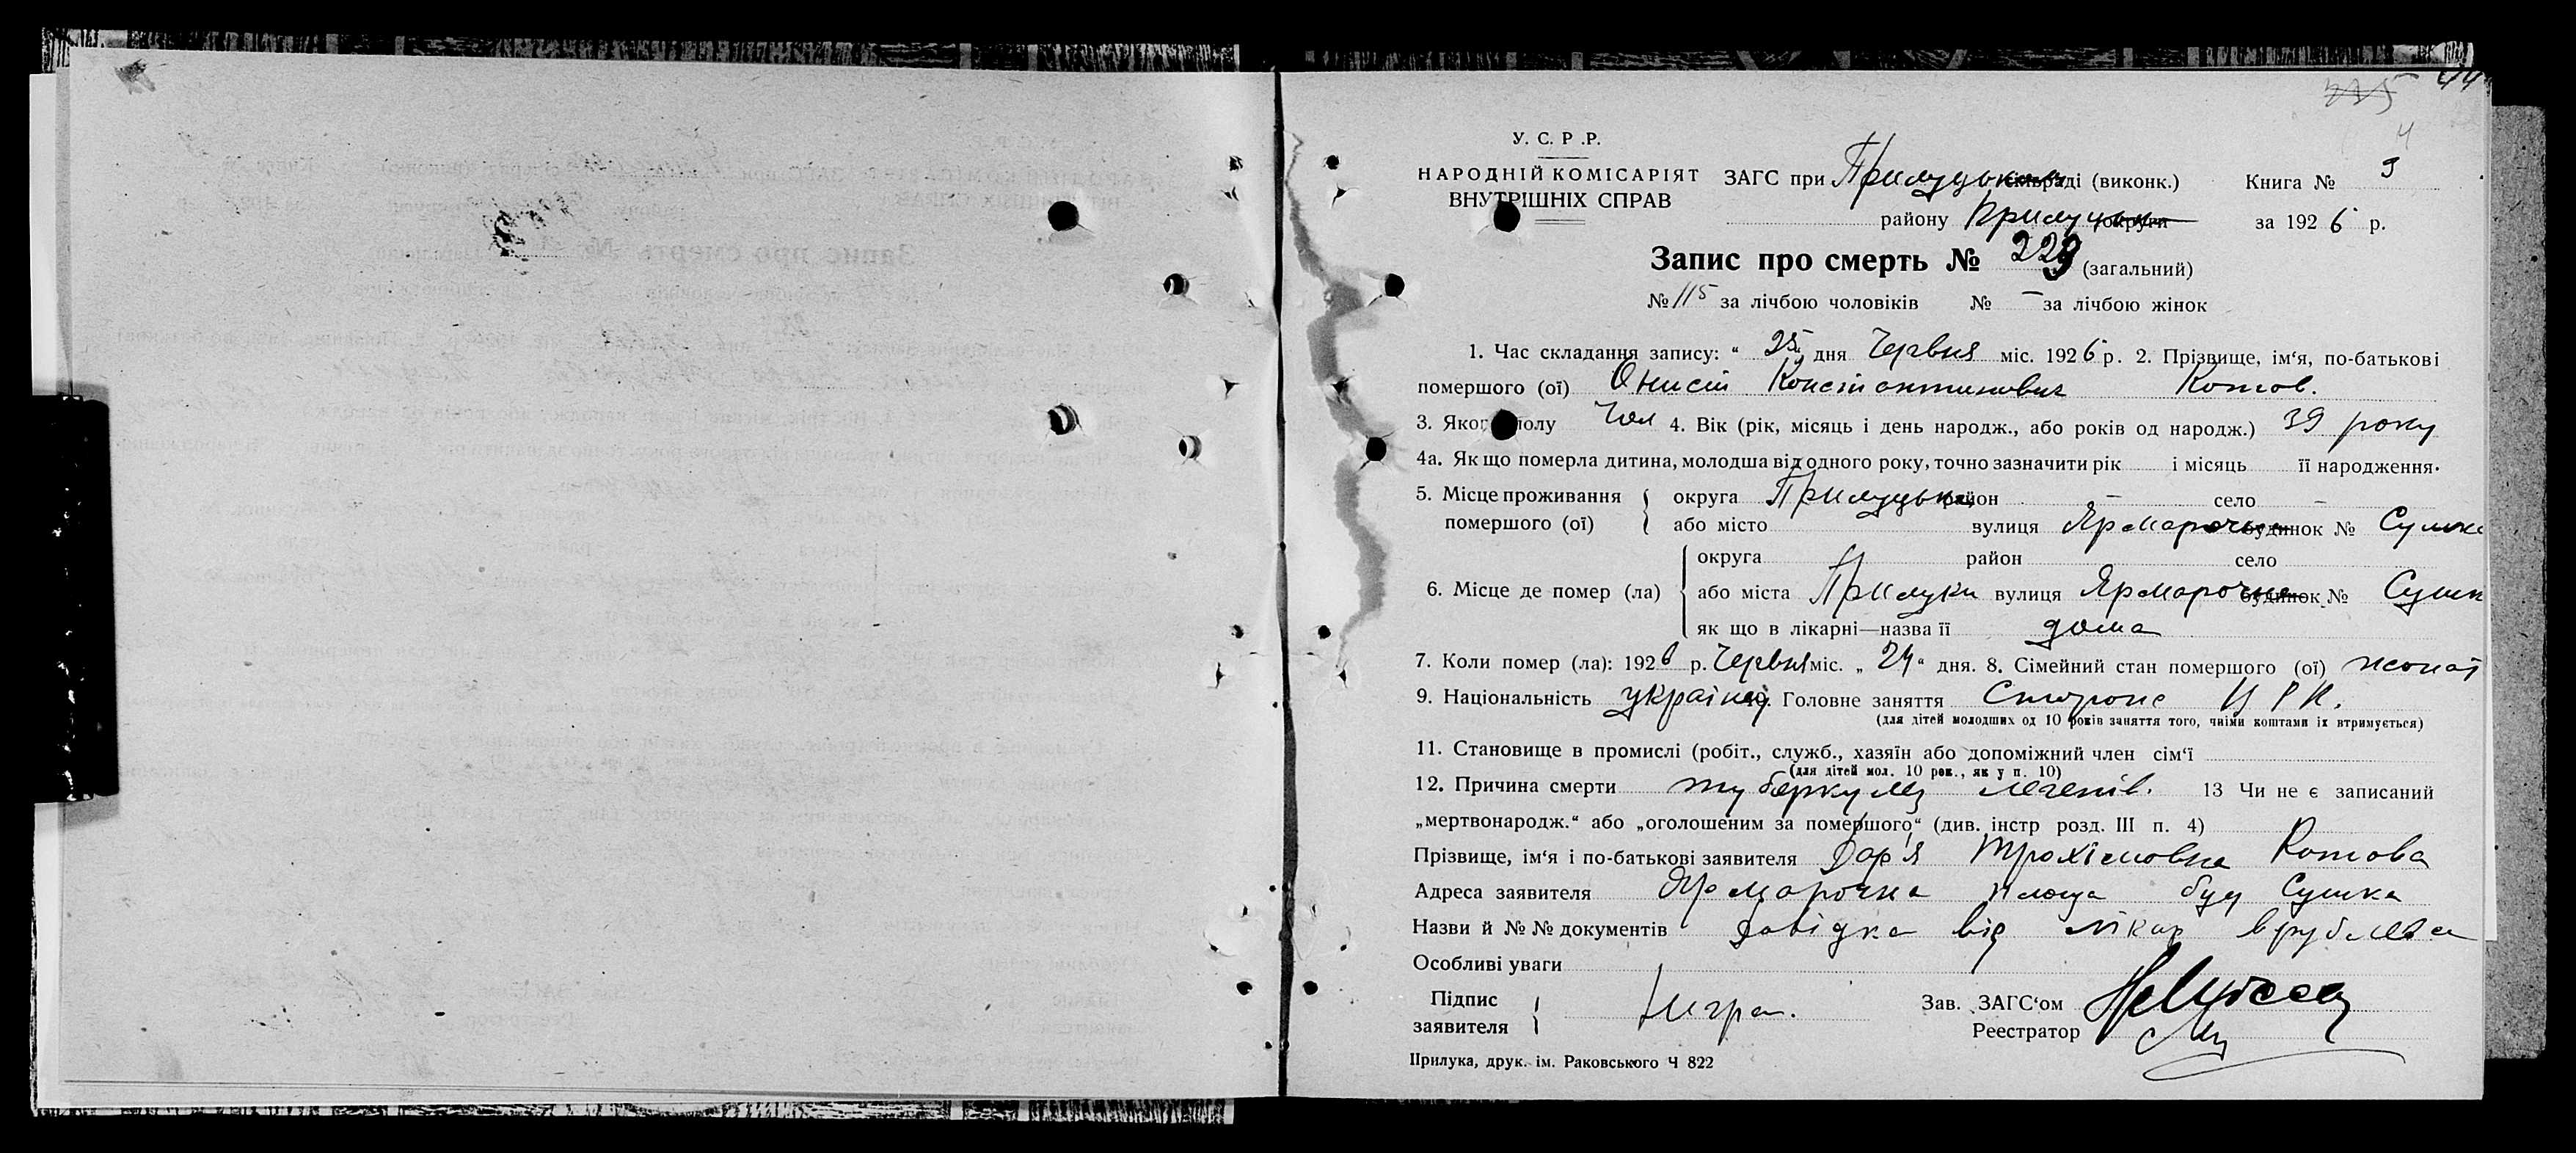 44
У. С. Р .Р.
НАРОДНІЙ КОМІСАРІЯТ
ВНУТРІШНІХ СПРАВ
ЗАГС при Прилуцьком раді (виконк.) Книга № 9
району Прилуцьк округи за 1926 р.
Запис про смерть № 229 (загальний)
№ 115 за лічбою чоловіків № — за лічбою жінок
1. Час складання запису: “ 25 „ дня Червня міс. 1926 р. 2. Прізвище, ім‘я, по-батькові
помершого (ої) Онисій Константинович Котов.
3. Якого полу Чол 4. Вік (рік, місяць і день народж., або років од народж.) 39 року
4а. Як що померла дитина, молодша від одного року, точно зазначити рік і місяць її народження.
5. Місце проживання помершого (ої) { округа Прилуцька район — село —
або місто вулиця Ярмарочна будинок № Сушка
6. Місце де помер (ла) { округа район село
або міста Прилуки вулиця Ярмарочна будинок № Сушк
як що в лікарні—назва її дома
7. Коли помер (ла): 1926 р. Червня міс. „ 24 “ дня. 8. Сімейний стан помершого (ої) жонат
9. Національність українец 10. Головне заняття Сторож Ц Р К.
(для дітей молодших од 10 років заняття того, чиїми коштами їх втримується)
11. Становище в промислі (робіт., служб., хазяїн або допоміжний член сім‘ї
(для дітей мол. 10 рок., як у п. 10)
12. Причина смерти туберкулез легенів. 13 Чи не є записаний
„мертвонародж.“ або „оголошеним за помершого“ (див. інстр розд. III п. 4)
Прізвище, ім‘я і по-батькові заявителя Дар'я Трохімовна Котова
Адреса заявителя Ярмарочна площа буд Сушка
Назви й № № документів Довідка від лікар Врублевск
Особливі уваги
Підпис
заявителя { негра.
Зав. ЗАГС‘ом
Реестратор
Прилука, друк. ім. Раковського Ч 822